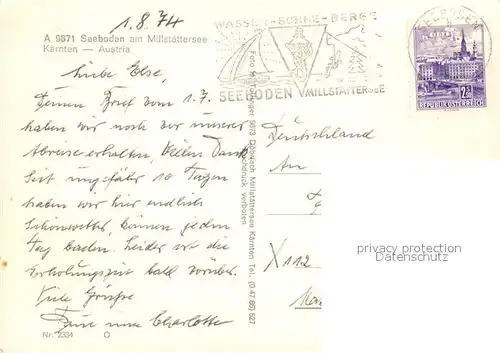 1.8.74
A 9871 Seeboden am Millstättersee
Kärnten — Austria
WASSER-SONNE-BERGE
SEEBODEN MILLSTÄTTERSEE
SEEBODEN
REPUBLIK ÖSTERREICH
Liebe Else,
Deinen Brief vom 1.7.
haben wir noch vor unserer
Abreise erhalten, Vielen Dank
Seit ungefähr 10 Tagen
haben wir hier endlich
Schönwetter, können jeden
Tag baden. Leider ist die
Erholungszeit bald vorüber.
Viele Grüsse
Charlotte
Nr. 2334
9873 Döbriach Millstättersee Kärnten Tel. (0 42 46)
Nachdruck verboten
Deutschland
An
X112
privacy protection
Datenschutz